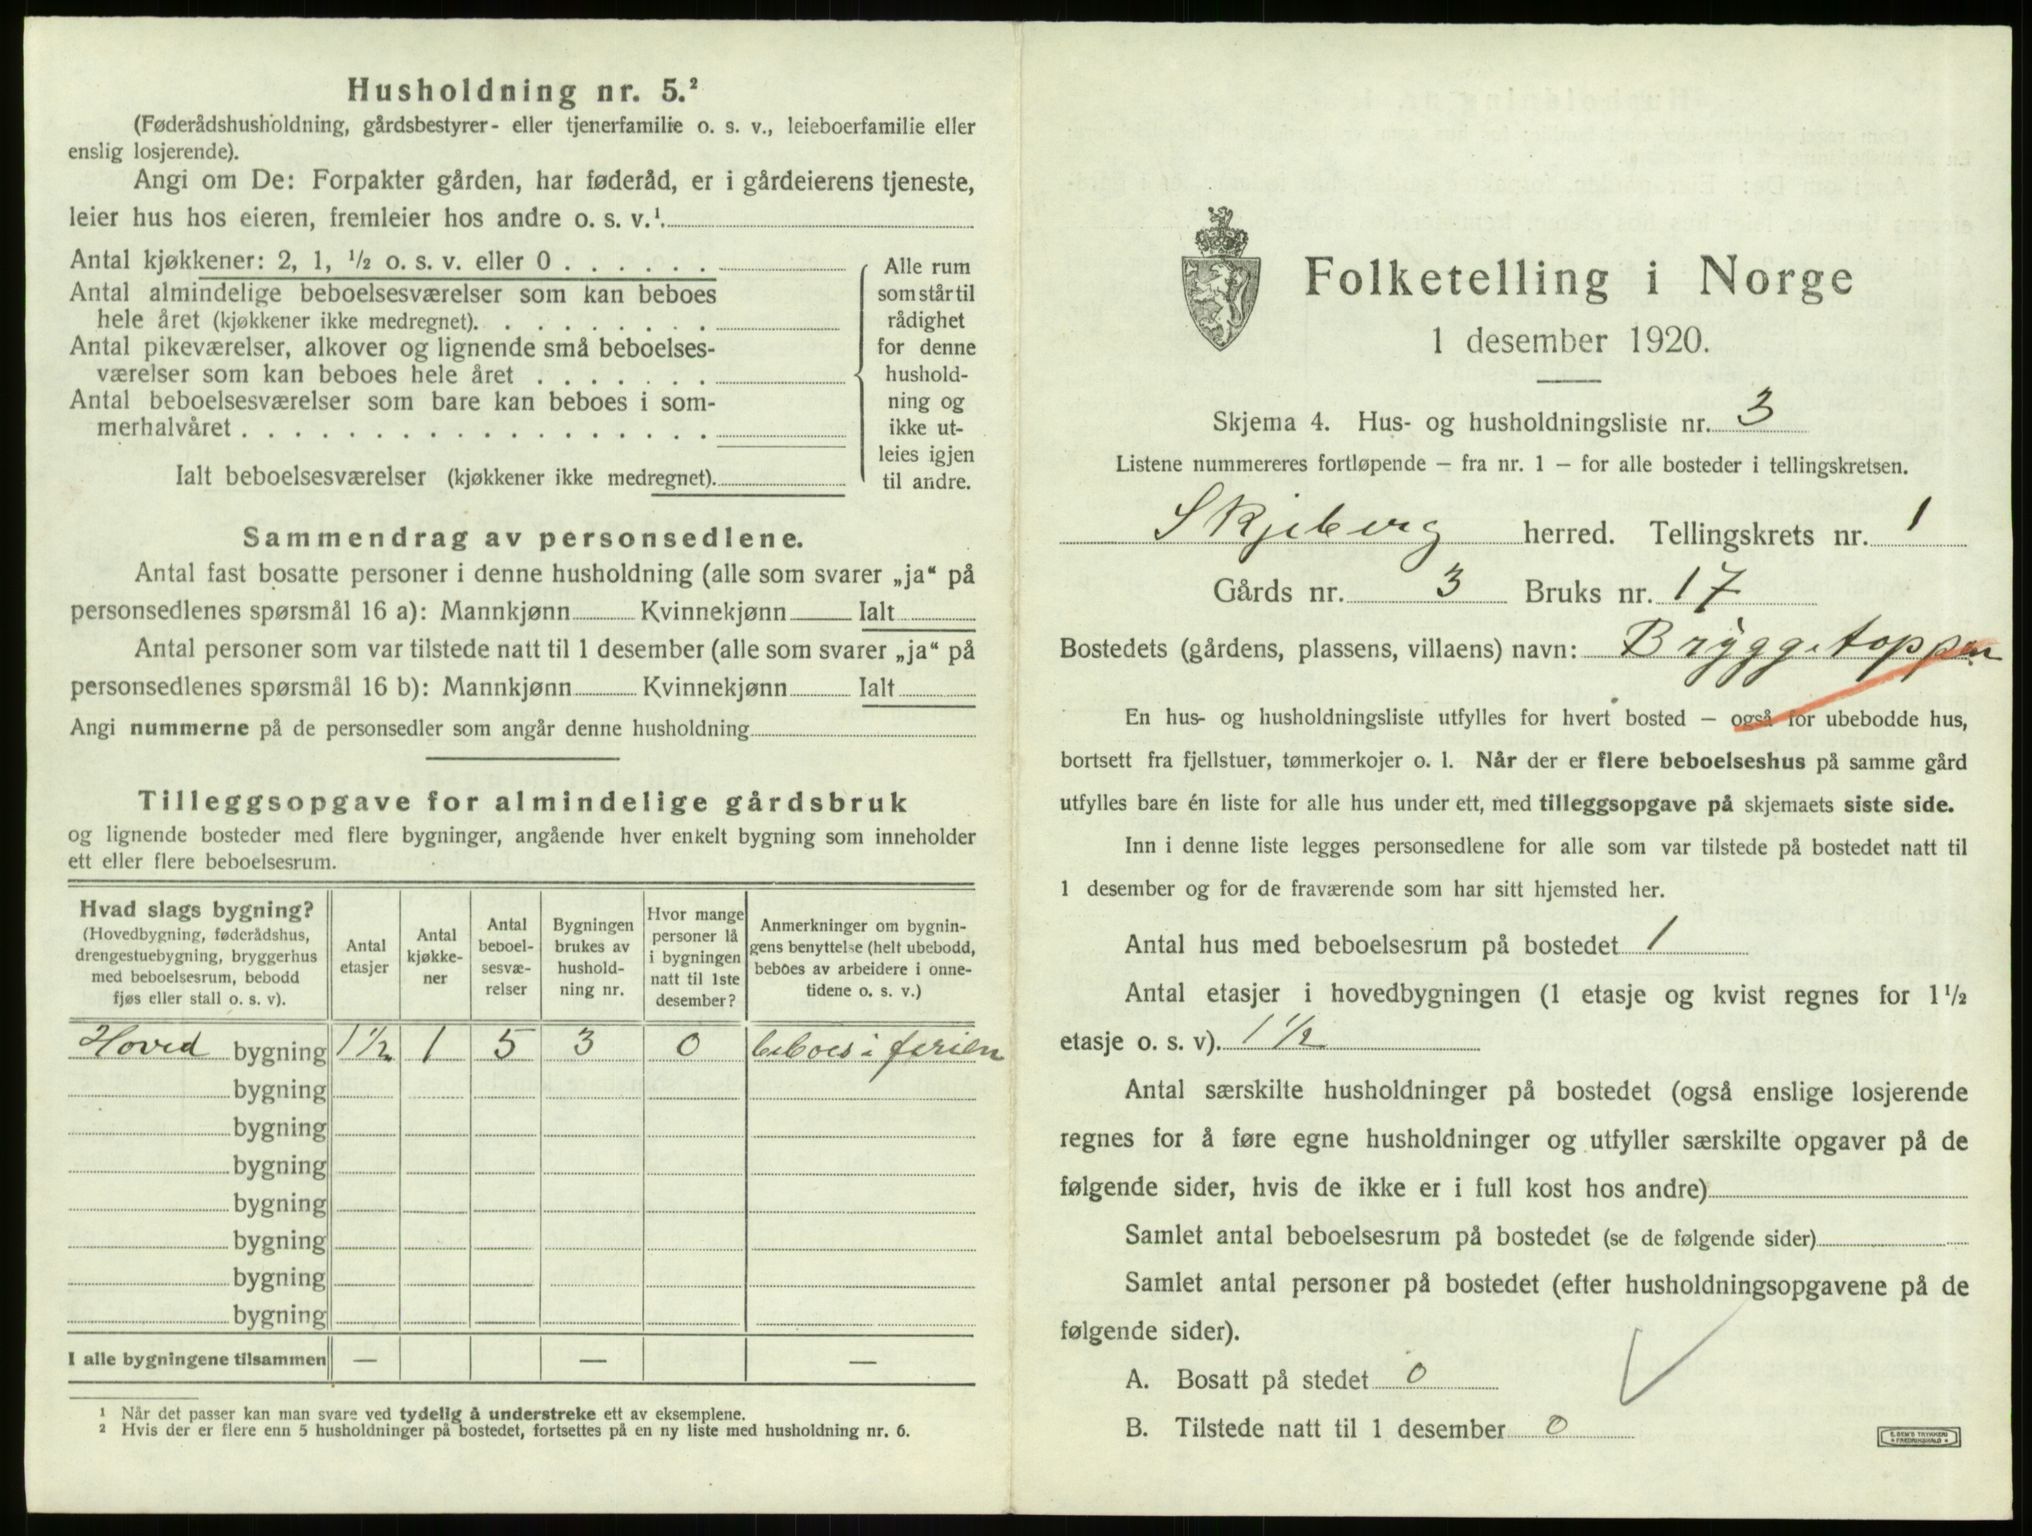 Husholdning nr. 5.²
(Føderådshusholdning, gårdsbestyrer- eller tjenerfamilie o. s. v., leieboerfamilie eller
enslig losjerende).
Angi om De: Forpakter gården, har føderåd, er i gårdeierens tjeneste,
leier hus hos eieren, fremleier hos andre o. s. v.¹
Antal kjøkkener: 2, 1, ½ o. s. v. eller 0 . . . . . .
Antal almindelige beboelsesværelser som kan beboes
hele året (kjøkkener ikke medregnet). . . . . . . . .
Antal pikeværelser, alkover og lignende små beboelses-
værelser som kan beboes hele året . . . . . . .
Antal beboelsesværelser som bare kan beboes i som-
merhalvåret . . . . . . . . . . . . . . . . . .
Ialt beboelsesværelser (kjøkkener ikke medregnet).
Alle rum
som står til
rådighet
for denne
hushold-
ning og
ikke ut-
leies igjen
til andre.
Sammendrag av personsedlene.
Antal fast bosatte personer i denne husholdning (alle som svarer „ja“ på
personsedlenes spørsmål 16 a): Mannkjønn Kvinnekjønn Ialt
Antal personer som var tilstede natt til 1 desember (alle som svarer „ja“ på
personsedlenes spørsmål 16 b): Mannkjønn Kvinnekjønn Ialt
Angi nummerne på de personsedler som angår denne husholdning
Tilleggsopgave for almindelige gårdsbruk
og lignende bosteder med flere bygninger, angående hver enkelt bygning som inneholder
ett eller flere beboelsesrum.
Hvad slags bygning?
(Hovedbygning, føderådshus,
drengestuebygning, bryggerhus
med beboelsesrum, bebodd
fjøs eller stall o. s. v).
Antal
etasjer
Antal
kjøkke-
ner
Antal
beboel-
sesvæ-
relser
Bygningen
brukes av
hushold-
ning nr.
Hvor mange
personer lå
i bygningen
natt til 1ste
desember?
Anmerkninger om bygnin-
gens benyttelse (helt ubebodd,
beboes av arbeidere i onne-
tidene o. s. v.)
Hoved bygning 1½ 1 5 3 0 beboes i ferien
bygning
bygning
bygning
bygning
bygning
bygning
bygning
I alle bygningene tilsammen — — —
¹ Når det passer kan man svare ved tydelig å understreke ett av eksemplene.
² Hvis der er flere enn 5 husholdninger på bostedet, fortsettes på en ny liste med husholdning nr. 6.
Folketelling i Norge
1 desember 1920.
Skjema 4. Hus- og husholdningsliste nr. 3
Listene nummereres fortløpende – fra nr. 1 – for alle bosteder i tellingskretsen.
Skjeberg herred. Tellingskrets nr. 1
Gårds nr. 3 Bruks nr. 17
Bostedets (gårdens, plassens, villaens) navn: Bryggetoppen
En hus- og husholdningsliste utfylles for hvert bosted – også for ubebodde hus,
bortsett fra fjellstuer, tømmerkojer o. l. Når der er flere beboelseshus på samme gård
utfylles bare én liste for alle hus under ett, med tilleggsopgave på skjemaets siste side.
Inn i denne liste legges personsedlene for alle som var tilstede på bostedet natt til
1 desember og for de fraværende som har sitt hjemsted her.
Antal hus med beboelsesrum på bostedet 1
Antal etasjer i hovedbygningen (1 etasje og kvist regnes for 1½
etasje o. s. v). 1½
Antal særskilte husholdninger på bostedet (også enslige losjerende
regnes for å føre egne husholdninger og utfyller særskilte opgaver på de
følgende sider, hvis de ikke er i full kost hos andre)
Samlet antal beboelsesrum på bostedet (se de følgende sider)
Samlet antal personer på bostedet (efter husholdningsopgavene på de
følgende sider).
A. Bosatt på stedet 0
B. Tilstede natt til 1 desember 0
E. SEM'S TRYKKERI
FREDRIKSHALD